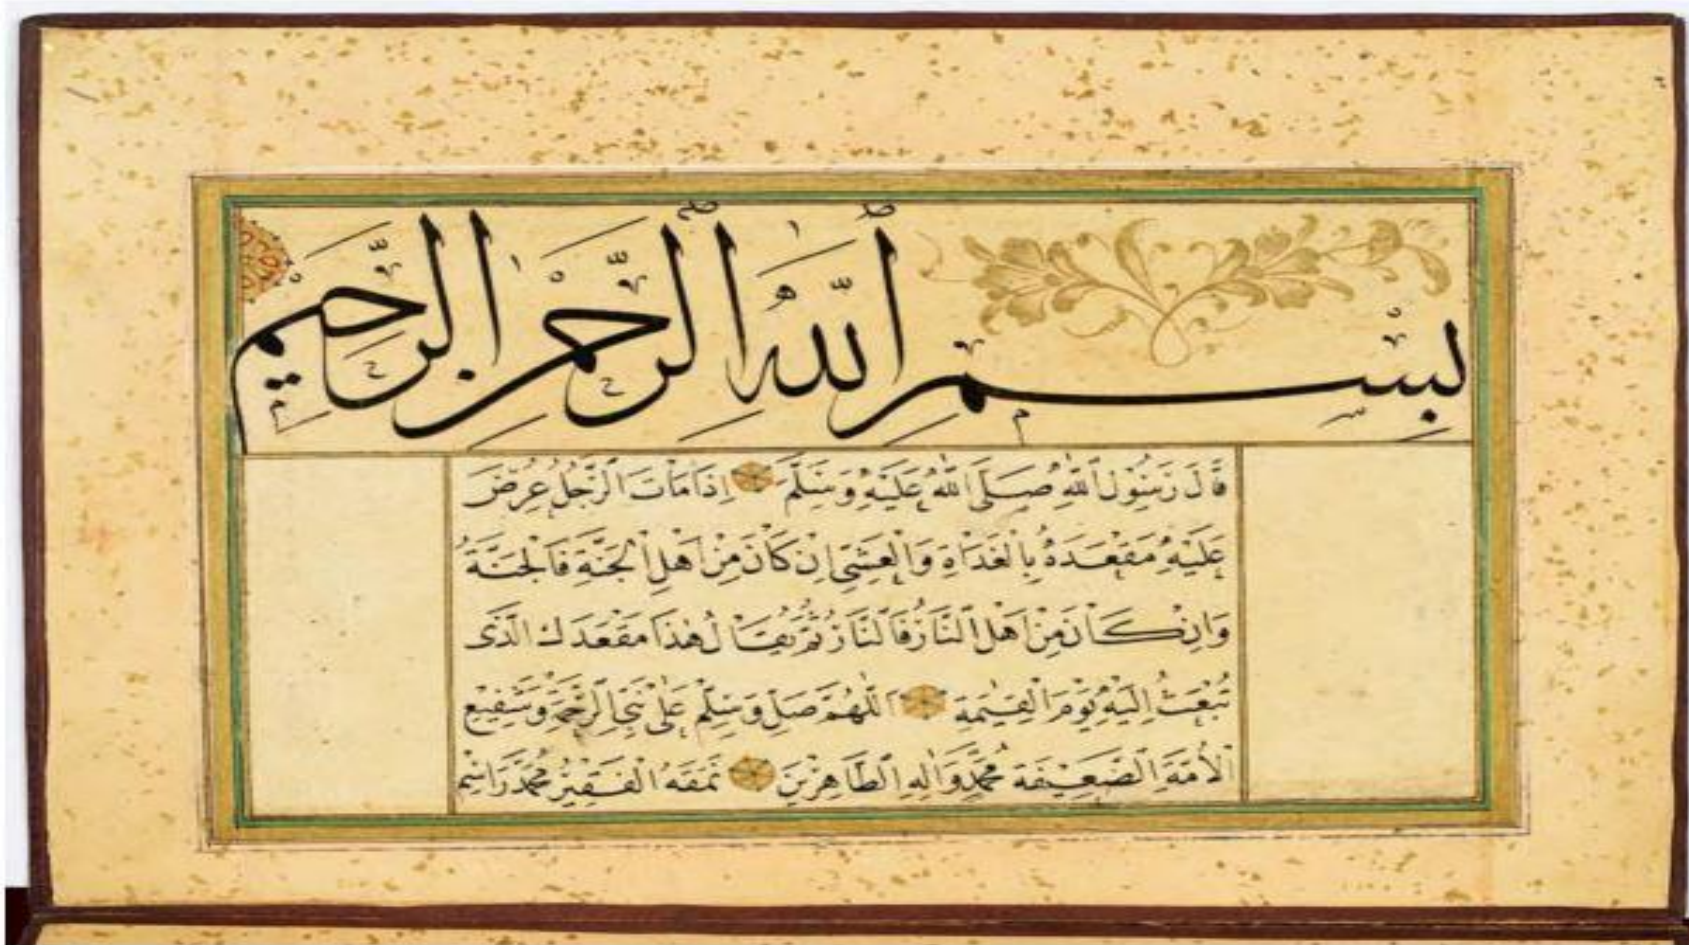 بِسْمِ اللّٰهِ الرَّحْمٰنِ الرَّحِيْمِ
قَالَ رَسُوْلُ اللّٰهِ صَلَّى اللّٰهُ عَلَيْهِ وَسَلَّمَ اِذَا مَاتَ الرَّجُلُ عُرِضَ
عَلَيْهِ مَقْعَدُهُ بِالْغَدَاةِ وَالْعَشِىِّ اِنْ كَانَ مِنْ اَهْلِ الْجَنَّةِ فَالْجَنَّةُ
وَاِنْ كَانَ مِنْ اَهْلِ النَّارِ فَالنَّارُ ثُمَّ يُقَالُ هٰذَا مَقْعَدُكَ الَّذِى
تُبْعَثُ اِلَيْهِ يَوْمَ الْقِيٰمَةِ اَللّٰهُمَّ صَلِّ وَسَلِّمْ عَلٰى نَبِىِّ الرَّحْمَةِ وَشَفِيْعِ
الْاُمَّةِ الضَّعِيْفَةِ مُحَمَّدٍ وَاٰلِهِ الطَّاهِرِيْنَ نَمَقَهُ الْفَقِيْرُ مُحَمَّدْ رَاسِمْ